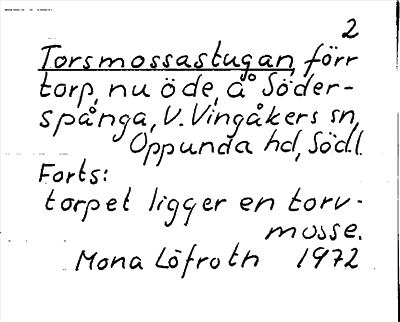 2
Torsmossastugan, förr
torp, nu öde, å Söder-
spånga, V. Vingåkers sn,
Oppunda hd, Södl.
Forts:
torpet ligger en torv-
mosse.
Mona Löfroth 1972